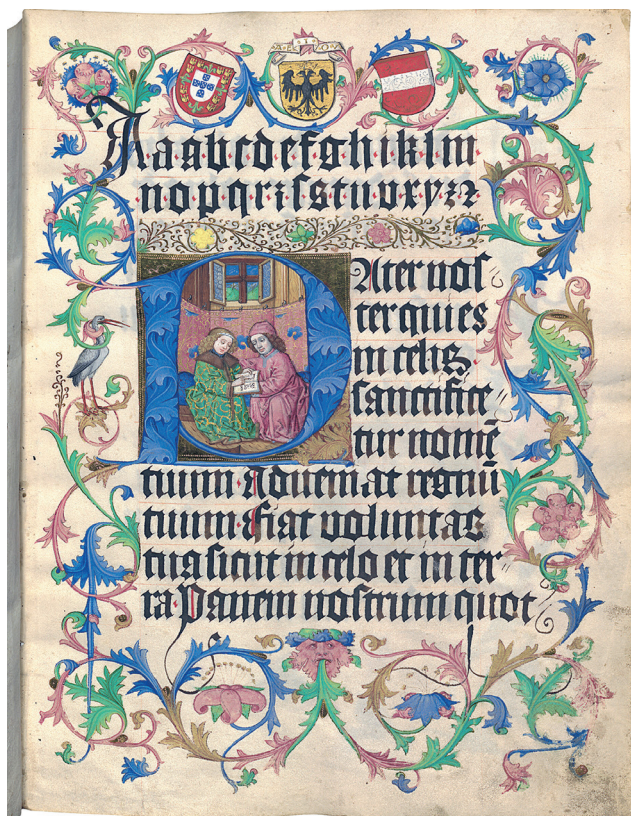 A a a b c d e f g h i k l m
n o p q r ꝛ ſ s t u v x y z ꝛ
Pater noſ
ter qui es
in celis
ſanctifice
tur nomē
tuum Adueniat regnū
tuum fiat voluntas
tua ſicut in celo et in ter
ra Panem noſtrum quot